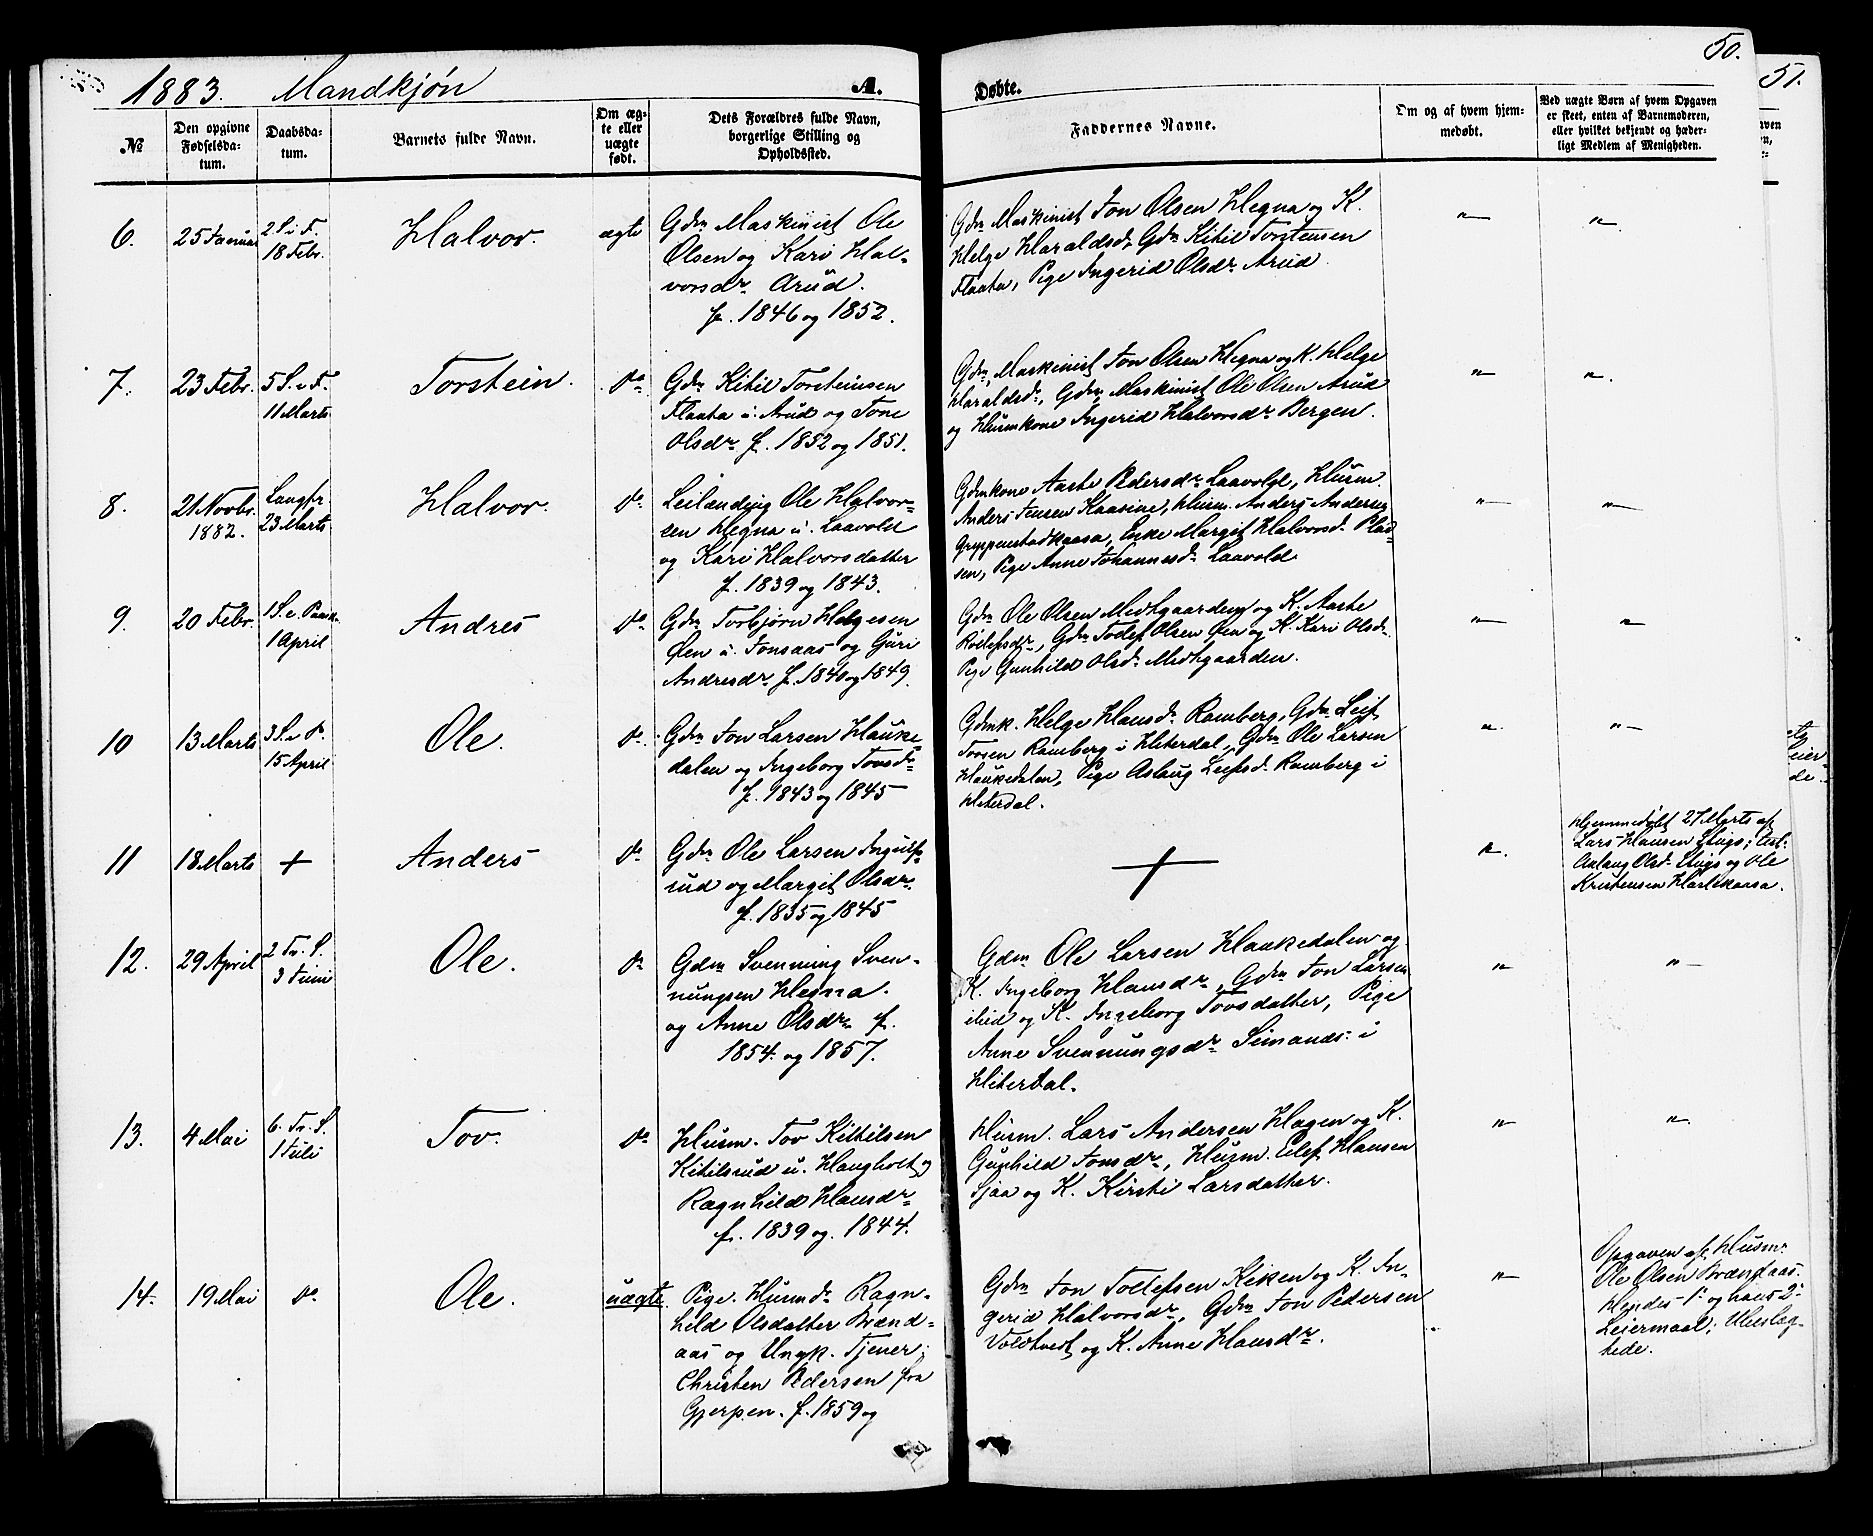 1883. Mandkjøn A. Døbte. 50.
51.
No
Den opgivne Fødselsdatum.
Daabsdatum.
Barnets fulde Navn.
Om ægte eller uægte født.
Dets Forældres fulde Navn, borgerlige Stilling og Opholdssted.
Faddernes Navne.
Om og af hvem hjemmedøbt.
Ved uægte Børn af hvem Opgaven er skeet, enten af Barnemoderen, eller hvilket bekjendt og hæderligt Medlem af Menigheden.
6. 25 Januar
2 S. i F.
18 Febr.
Halvor. ægte
Gdm Maskinist Ole
Olsen og Kari Hal-
vorsdr Arud.
f. 1846 og 1852.
Gdm Maskinist Jon Olsen Hegna og K.
Helge Haraldsd, Gdm Kitil Torstensen
Flaata, Pige Ingerid Olsdr Arud
" "
7. 23 Febr.
5 S. i F.
11 Marts
Torstein. do
Gdm Kitil Torsteinsen
Flaata u. Arud og Tone
Olsdr f. 1852 og 1851.
Gdm, Maskinist Jon Olsen Hegna og K. Helge
Haraldsdr, Gdm, Maskinist Ole Olsen Arud
og Husmkone Ingerid Halvorsdr Bergen.
" "
8. 21 Novbr.
1882.
Langfr.
23 Marts
Halvor. do
Leilænding Ole Halvor-
sen Hegna u. Laavold
og Kari Halvorsdatter
f. 1839 og 1843.
Gdmkone Aaste Pedersdr Laavolde, Husm.
Anders Jensen Kaasine, Husm. Anders Andersen
Gryppenstadkaasa, Enke Margit Halvorsd. Plad-
sen, Pige Anne Johannesdr Laavold
" "
9. 20 Febr.
1 S. e. Paask.
1 April
Andres do
Gdm Torbjørn Helgesen
Øen u. Jonsaas og Guri
Andresdr f. 1840 og 1849.
Gdm Ole Olsen Midtgaarden og K. Aaste
Rollefsdr, Gdm Tollef Olsen Øen og K. Kari Olsd
Pige Gunhild Olsd. Midtgaarden.
" "
10 13 Marts
3 S. e. P.
15 April
Ole. do
Gdm Jon Larsen Hauke-
dalen og Ingeborg Tovsdr
f. 1843 og 1845
Gdmk. Helge Hansd. Ramberg, Gdm Leif
Tovsen Ramberg i Hiterdal, Gdm Ole Larsen
Haukedalen, Pige Aslaug Leifsd. Ramberg i
Hiterdal.
" "
11 18 Marts + Anders do
Gdm Ole Larsen Ingulfs-
rud og Margit Olsdr
f. 1835 og 1845
+
"
Hjemmedøbt 27 Marts af
Lars Hansen Stugo; test.
Aslaug Olsd. Stugo og Ole
Kristensen
12. 29 April
2 Tr. S.
3 Juni
Ole. do
Gdm Svenning Sven-
nungsen Hegna.
og Anne Olsdr f.
1854 og 1857.
Gdm Ole Larsen Haukedalen og
K. Ingeborg Hansdr, Gdm Jon Larsen
ibid og K. Ingeborg Tovsdatter, Pige
Anne Svennungsdr Semands. i
Hiterdal.
" "
13. 4 Mai
6. Tr. S.
1 Juli
Tov. do
Husm. Tov Kittilsen
Kitilsrud u. Haugholt og
Ragnhild Hansdr
f. 1839 og 1844.
Husm. Lars Andersen Hagen og K.
Gunhild Jonsdr, Husm. Elef Hansen
Sjaa og K. Kirsti Larsdatter.
" "
14. 19 Mai do Ole. uægte.
Pige. Husmd. Ragn-
hild Olsdatter Brænd-
aas og Ungk. Tjener
Christen Pedersen fra
Gjerpen. f. 1859 og
Gdm Jon Tollefsen Kiken og K. In-
gerid Halvorsdr, Gdm Jon Pedersen
Voldtvedt og K. Anne Hansdr.
"
Opgaven af Husm.
Ole Olsen Brændaas.
Hendes 1ste og hans 2.
Leiermaal; Ubeslæg-
tede.